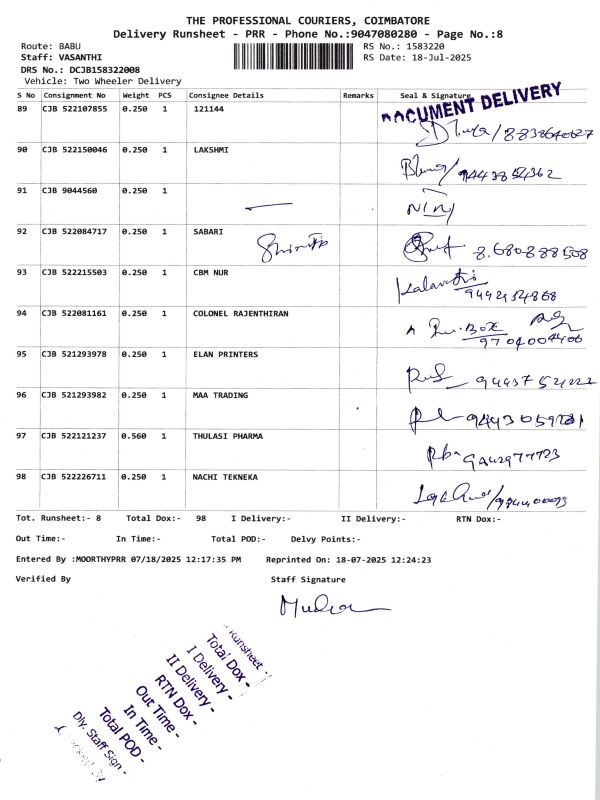 THE PROFESSIONAL COURIERS, COIMBATORE
Delivery Runsheet - PRR - Phone No.:9047080280 - Page No.:8
Route: BABU
RS No.: 1583220
Staff: VASANTHI
RS Date: 18-Jul-2025
DRS No.: DCJB158322008
Vehicle: Two Wheeler Delivery
S No Consignment No Weight PCS Consignee Details Remarks Seal & Signature
DOCUMENT DELIVERY
89 CJB 522107855 0.250 1 121144
90 CJB 522150046 0.250 1 LAKSHMI
91 CJB 9044560 0.250 1
92 CJB 522084717 0.250 1 SABARI
93 CJB 522215503 0.250 1 CBM NUR
94 CJB 522081161 0.250 1 COLONEL RAJENTHIRAN
95 CJB 521293978 0.250 1 ELAN PRINTERS
96 CJB 521293982 0.250 1 MAA TRADING
97 CJB 522121237 0.560 1 THULASI PHARMA
98 CJB 522226711 0.250 1 NACHI TEKNEKA
Tot. Runsheet:- 8 Total Dox:- 98 I Delivery:- II Delivery:- RTN Dox:-
Out Time:- In Time:- Total POD:- Delvy Points:-
Entered By :MOORTHYPRR 07/18/2025 12:17:35 PM Reprinted On: 18-07-2025 12:24:23
Verified By Staff Signature
Runsheet -
Total Dox -
I Delivery -
II Delivery -
RTN Dox -
Out Time -
In Time -
Total POD -
Dly. Staff Sign -